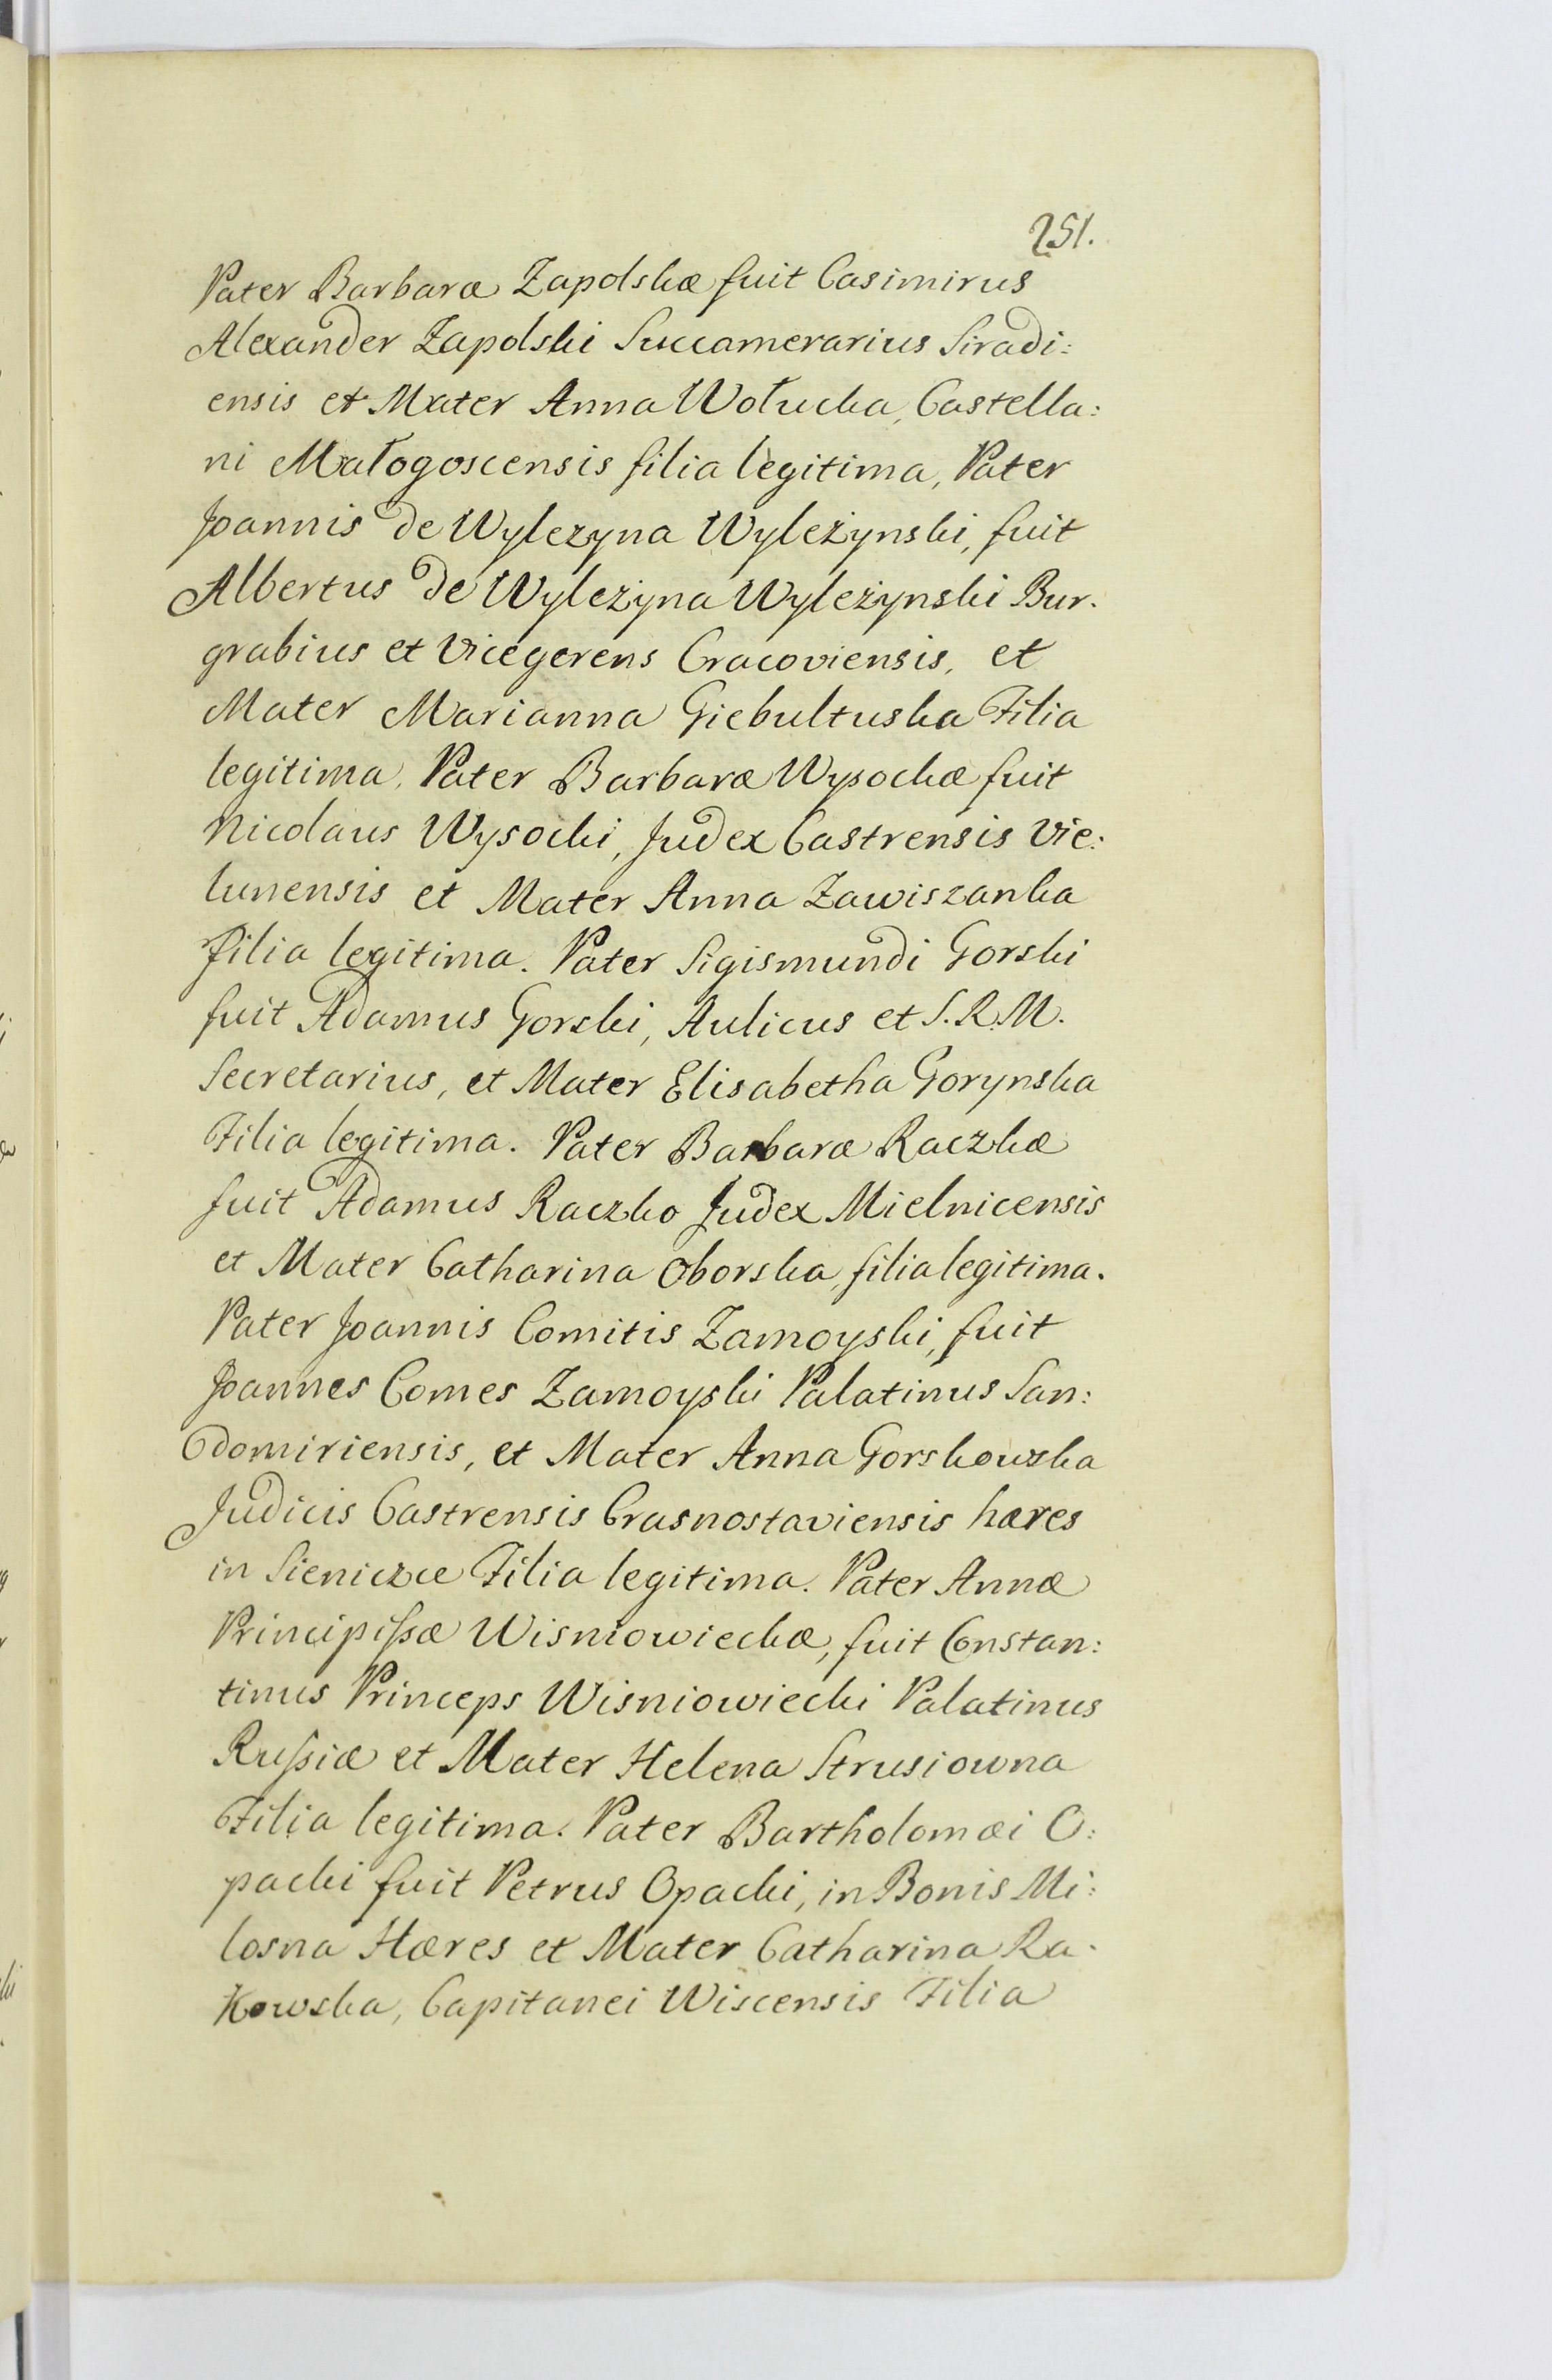 251.
Pater Barbaræ Zapolskæ fuit Casimirus
Alexander Zapolski Succamerarius Siradi:
ensis et Mater Anna Wołucka, Castella:
ni Małogoscensis filia legitima, Pater
Joannis de Wylezyna Wyleżynski, fuit
Albertus de Wyleżyna Wyleżynski Bur.
grabius et Vicegerens Cracoviensis, et
Mater Marianna Giebultuska Filia
legitima, Pater Barbaræ Wysockæ fuit
Nicolaus Wysocki, Judex Castrensis Vie:
lunensis et Mater Anna Zawiszanka
Filia legitima. Pater Sigismundi Gorski
fuit Adamus Gorski, Aulicus et S. R. M.
Secretarius, et Mater Elisabetha Gorynska
Filia legitima. Pater Barbaræ Raczkæ
fuit Adamus Raczko Judex Mielnicensis
et Mater Catharina Oborska, filia legitima.
Pater Joannis Comitis Zamoyski, fuit
Joannes Comes Zamoyski Palatinus San:
domiriensis, et Mater Anna Gorskowska
Judicis Castrensis Crasnostaviensis hæres
in Sieniczce Filia legitima. Pater Annæ
Principissæ Wisniowieckæ, fuit Constan:
tinus Princeps Wisniowiecki Palatinus
Russiæ et Mater Helena Strusiowna
Filia legitima. Pater Bartholomæi O:
packi fuit Petrus Opacki, in Bonis Mi:
losna Hæres et Mater Catharina Ra.
Kowska, Capitanei Wiscensis Filia